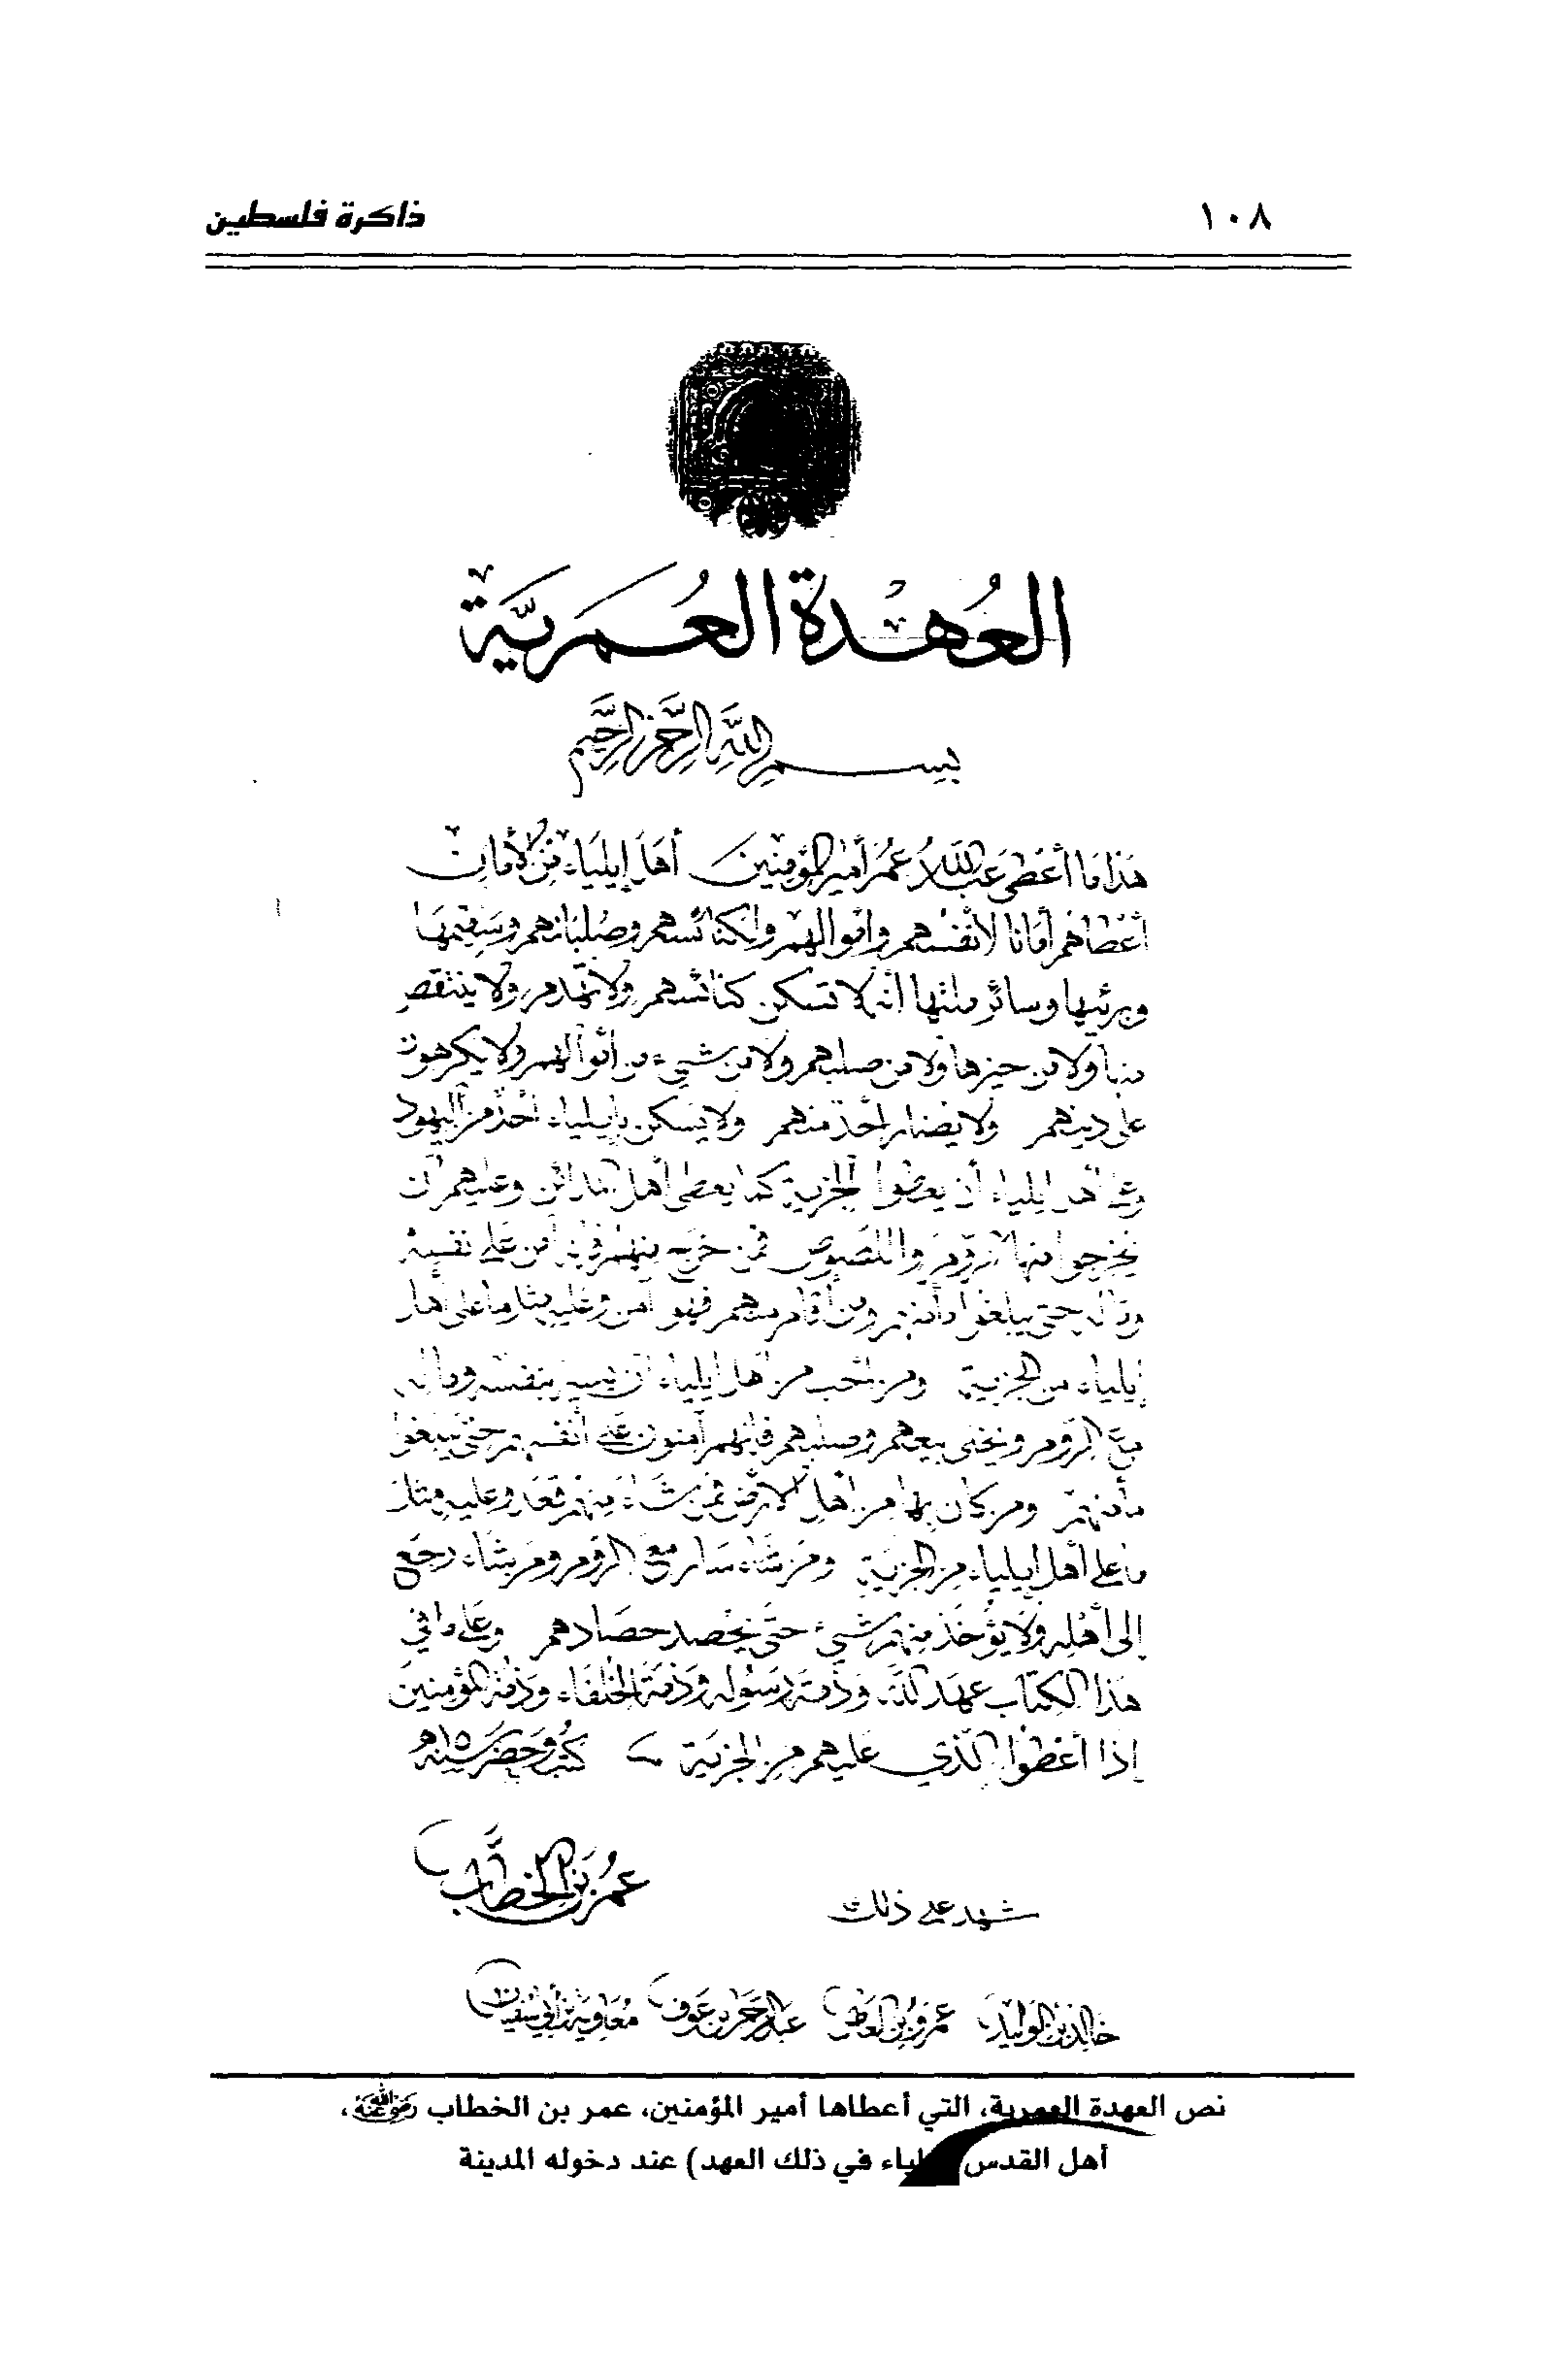 ١٠٨
ذاكرة فلسطين
العُهْدة العُمَريَّة
بسم اللَّه الرَّحمن الرَّحيم
هذا ما أعطى عبد اللَّه عُمَر أمير المؤمنين أهل إيلياء من الأمان
أعطاهم أمانا لأنفسهم وأموالهم ولكنائسهم وصلبانهم وسقيمها
وبرئيها وسائر ملتها أنه لا تسكن كنائسهم ولا تهدم ولا ينتقص
منها ولا من حيزها ولا من صلبهم ولا من شيء من أموالهم ولا يكرهون
على دينهم ولا يضار أحد منهم ولا يسكن بإيلياء أحد من اليهود
وعلى أهل إيلياء أن يعطوا الجزية كما يعطى أهل المدائن وعليهم أن
يخرجوا منها الروم واللصوص فمن خرج منهم فإنه آمن على نفسه
وماله حتى يبلغوا مأمنهم ومن أقام منهم فهو آمن وعليه مثل ما على أهل
إيلياء من الجزية ومن أحب من أهل إيلياء أن يسير بنفسه وماله
مع الروم ويخلى بيعهم وصلبهم فإنهم آمنون على أنفسهم حتى يبلغوا
مأمنهم ومن كان بها من أهل الأرض فمن شاء منهم قعد وعليه مثل
ما على أهل إيلياء من الجزية ومن شاء سار مع الروم ومن شاء رجع
إلى أهله ولا يؤخذ منهم شيء حتى يحصد حصادهم وعلى ما في
هذا الكتاب عهد الله وذمة رسوله وذمة الخلفاء وذمة المؤمنين
إذا أعطوا الذي عليهم من الجزية كتب وحضر سنة ١٥ هـ
عمر بن الخطاب
شهد على ذلك
خالد بن الوليد عمرو بن العاص عبد الرحمن بن عوف معاوية بن أبي سفيان
نص العهدة العمرية، التي أعطاها أمير المؤمنين، عمر بن الخطاب رضي الله عنه،
أهل القدس في ذلك العهد) عند دخوله المدينة